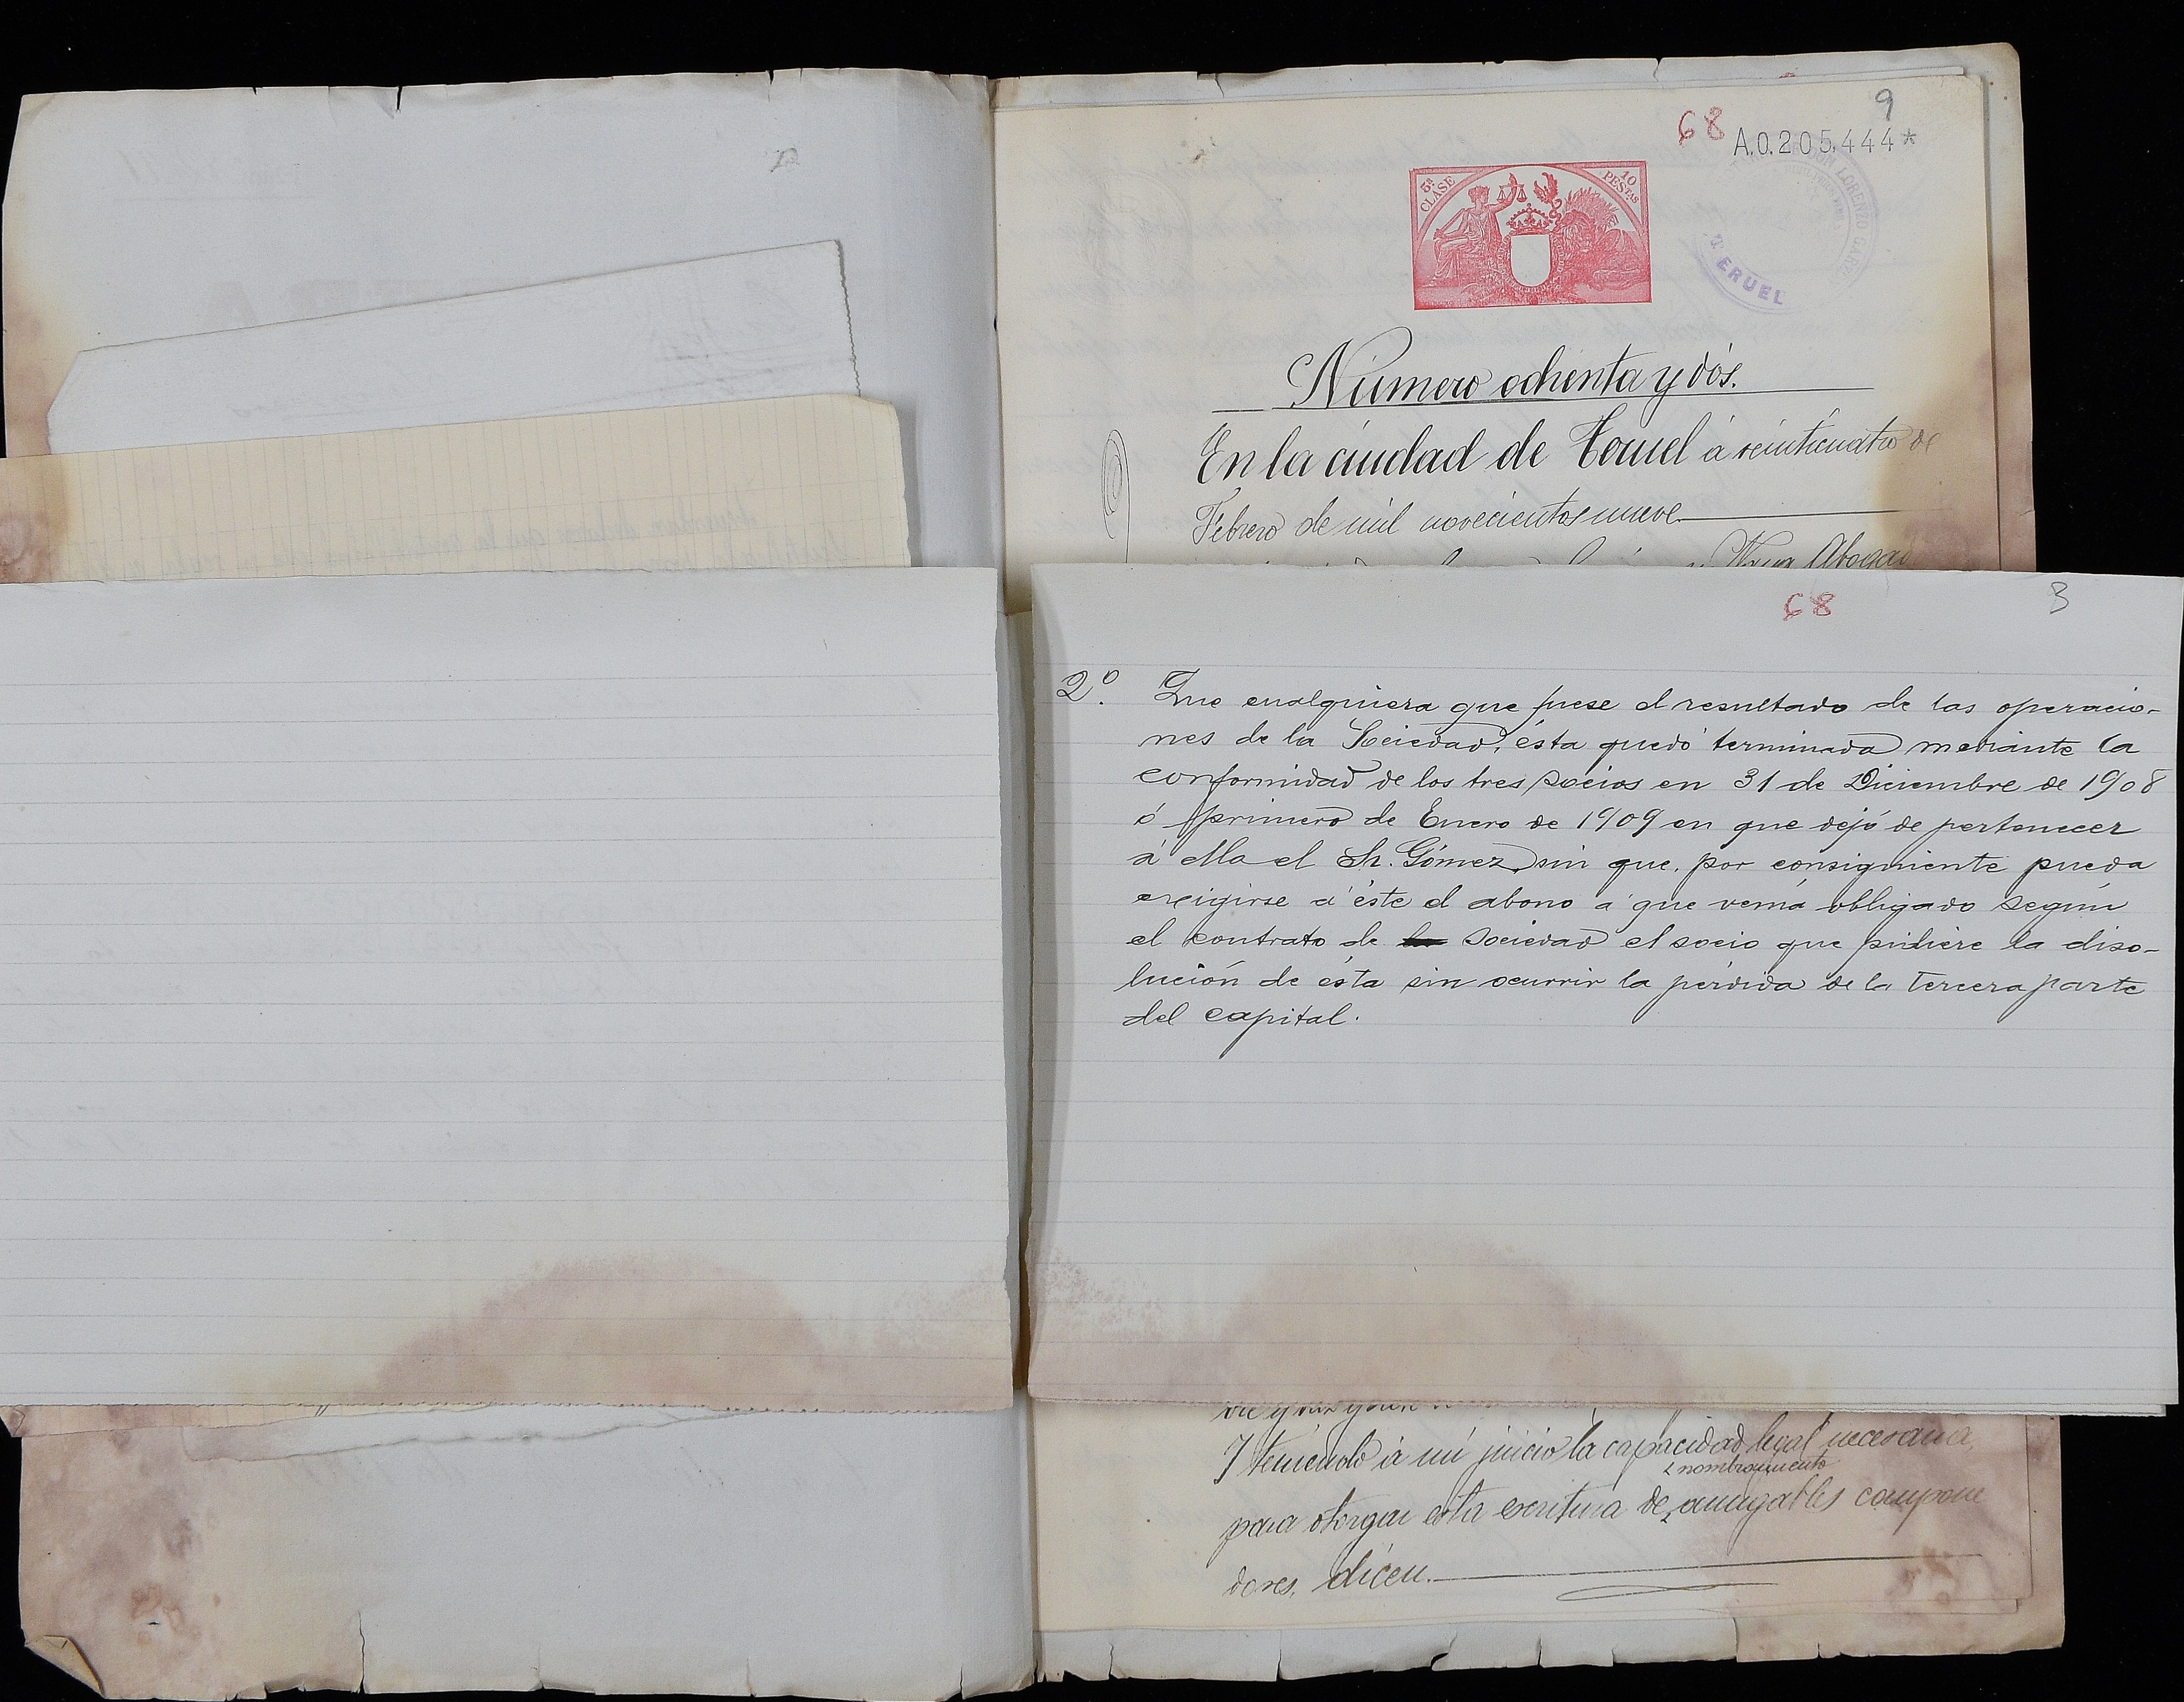 68
9
A.0.205,444*
5ª CLASE
10 PESTAS
LORENZO
TERUEL
Número ochenta y dós.
En la ciudad de Teruel á veinticuatro de
Febrero de mil novecientos nueve
Abogad
68
3
2º. Que cualquiera que fuese el resultado de las operacio-
nes de la Sociedad, ésta quedó terminada mediante la
conformidad de los tres socios en 31 de Diciembre de 1908
ó primero de Enero de 1909 en que dejó de pertenecer
á ella el Sr. Gómez, sin que, por consiguiente pueda
exigirse á éste el abono á que venía obligado según
el contrato de sociedad el socio que pidiere la diso-
lución de ésta sin ocurrir la pérdida de la tercera parte
del capital.
Y teniendo á mi juicio la capacidad legal necesaria
nombramiento
para otorgar esta escritura de amigables compone
dores, dicen.